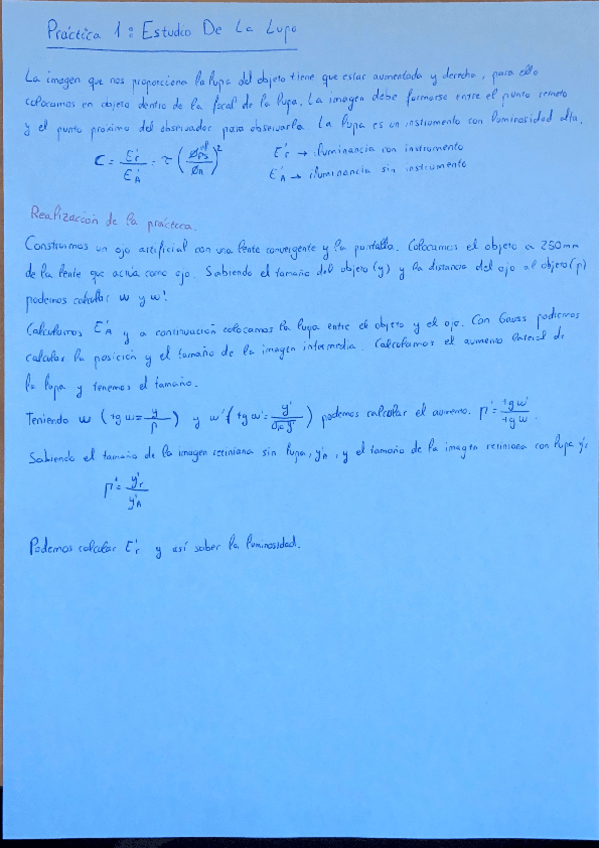 Práctica 1: Estudio De La Lupa
La imagen que nos proporciona la lupa del objeto tiene que estar aumentada y derecha, para ello
colocamos en objeto dentro de la focal de la lupa. La imagen debe formarse entre el punto remoto
y el punto proximo del observador para observarla. La lupa es un instrumento con luminosidad alta.
C = E'r / E'A = τ ( / ØA )² E'r → iluminancia con instrumento
E'A → iluminancia sin instrumento
Realización de la práctica.
Construimos un ojo artificial con una lente convergente y la pantalla. Colocamos el objeto a 250mm
de la lente que actúa como ojo. Sabiendo el tamaño del objeto (y) y la distancia del ojo al objeto (p)
podemos calcular w y w'.
Calculamos E'A y a continuación colocamos la lupa entre el objeto y el ojo. Con Gauss podremos
calcular la posición y el tamaño de la imagen intermedia. Calculamos el aumento lateral de
la lupa y tenemos el tamaño.
Teniendo w (tg w = y / p) y w' (tg w' = y' / ) podemos calcular el aumento. Γ' = tg w' / tg w.
Sabiendo el tamaño de la imagen retiniana sin lupa, y'A, y el tamaño de la imagen retiniana con lupa y'r
Γ' = y'r / y'A
Podemos calcular E'r y así saber la luminosidad.